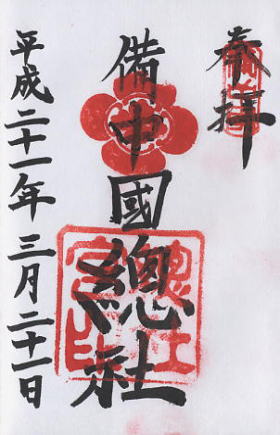 奉拝
備中國總社
平成二十一年三月二十一日